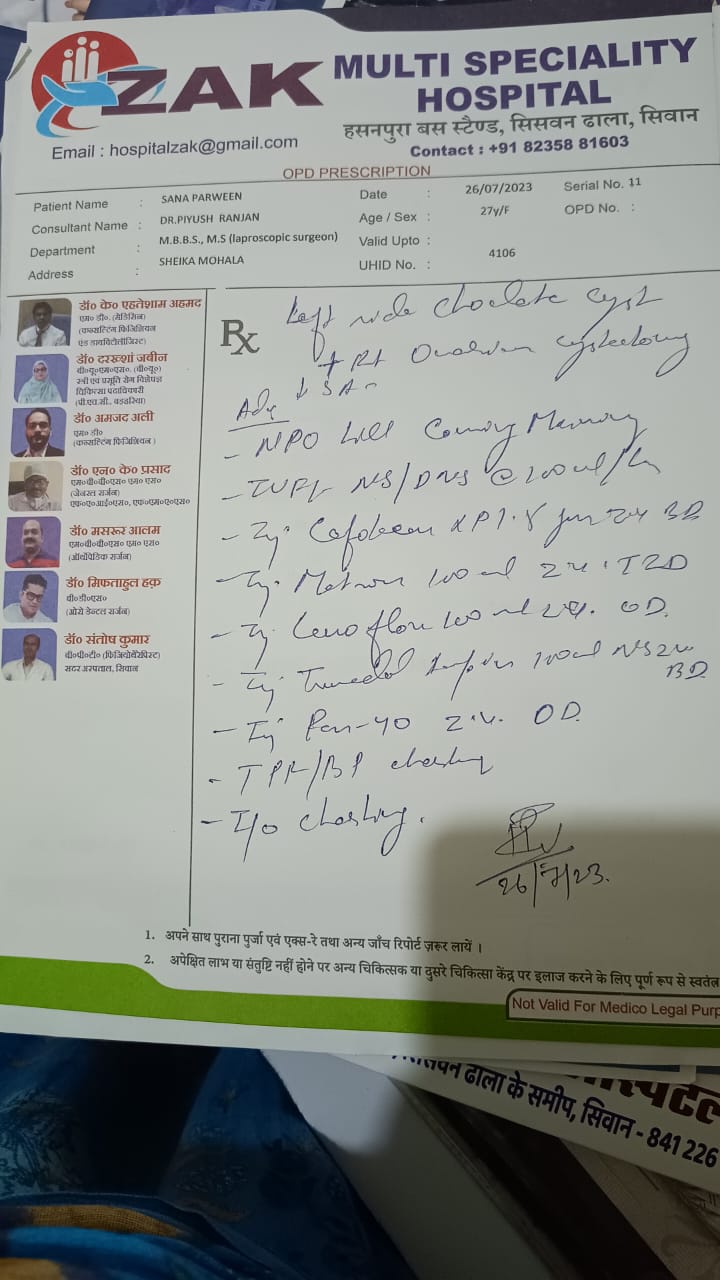 ZAK MULTI SPECIALITY
HOSPITAL
हसनपुरा बस स्टैण्ड, सिसवन ढाला, सिवान
Email : hospitalzak@gmail.com
Contact : +91 82358 81603
OPD PRESCRIPTION
Patient Name : SANA PARWEEN
Date : 26/07/2023
Serial No. 11
Consultant Name : DR.PIYUSH RANJAN
Age / Sex : 27y/F
OPD No. :
Department : M.B.B.S., M.S (laproscopic surgeon)
Valid Upto :
Address : SHEIKA MOHALA
UHID No. : 4106
डॉ० के० एहतेशाम अहमद
एम० डी०. (मेडिसिन)
(कन्सल्टिंग फिजिशियन
एंड डायबिटीलॉजिस्ट)
डॉ० दरख्शां जबीन
बी०यू०एम०एस०. (बी०यू०)
स्त्री एवं प्रसूति रोग विशेषज्ञ
चिकित्सा पदाधिकारी
(पी.एच.सी., बड़हरिया)
डॉ० अमजद अली
एम० डी०
(कन्सल्टिंग फिजिशियन )
डॉ० एन० के० प्रसाद
एम०बी०बी०एस० एम० एस०
(जेनरल सर्जन)
एफ०ए०आई०एस०, एफ०एम०ए०एस०
डॉ० मसरूर आलम
एम०बी०बी०एस० एम० एस०
(ऑर्थोपेडिक सर्जन)
डॉ० मिफताहुल हक़
बी०डी०एस०
(ओरो डेन्टल सर्जन)
डॉ० संतोष कुमार
बी०पी०टी० (फिजियोथेरेपिस्ट)
सदर अस्पताल, सिवान
Rx
Left side choclate cyst
Ovarian cystectomy
Adv ↓ SA
- NPO till Coming Morning
- IVF NS/DNS @ 100ml/h
- Inj. BD
- Inj. Metron 100ml TID
- Inj. 100ml OD.
- Inj. 100ml NS
BD.
- Inj Pan-40 OD.
- TPR/BP charting
- I/o charting.
26/7/23.
1. अपने साथ पुराना पुर्जा एवं एक्स-रे तथा अन्य जाँच रिपोर्ट ज़रूर लायें ।
2. अपेक्षित लाभ या संतुष्टि नहीं होने पर अन्य चिकित्सक या दुसरे चिकित्सा केंद्र पर इलाज करने के लिए पूर्ण रूप से स्वतंत्र
Not Valid For Medico Legal Purp
सिसवन ढाला के समीप, सिवान - 841 226